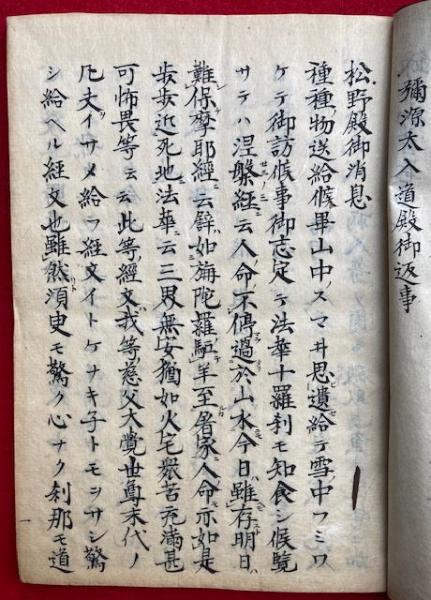 彌源太入道殿御返事
松野殿御消息
種種物送給候畢山中ノスマヰ思遺給テ雪ノ中フミワ
ケテ御訪候事御志定テ法華十羅刹モ知食シ候覧
サテハ涅槃経ニ云人命ノ不停過於山水今日雖存明日
難保摩耶経ニ云譬如旃陀羅駈羊至屠家人命亦如是
歩歩近死地法華ニ云三界無安猶如火宅衆苦充満甚
可怖畏等云云此等ノ経文ハ我等カ慈父大覺世尊末代ノ
凡夫ヲイサメ給フ経文イトケナキ子トモヲサシ驚
シ給ヘル経文也雖然須臾モ驚ク心ナク刹那モ道
一